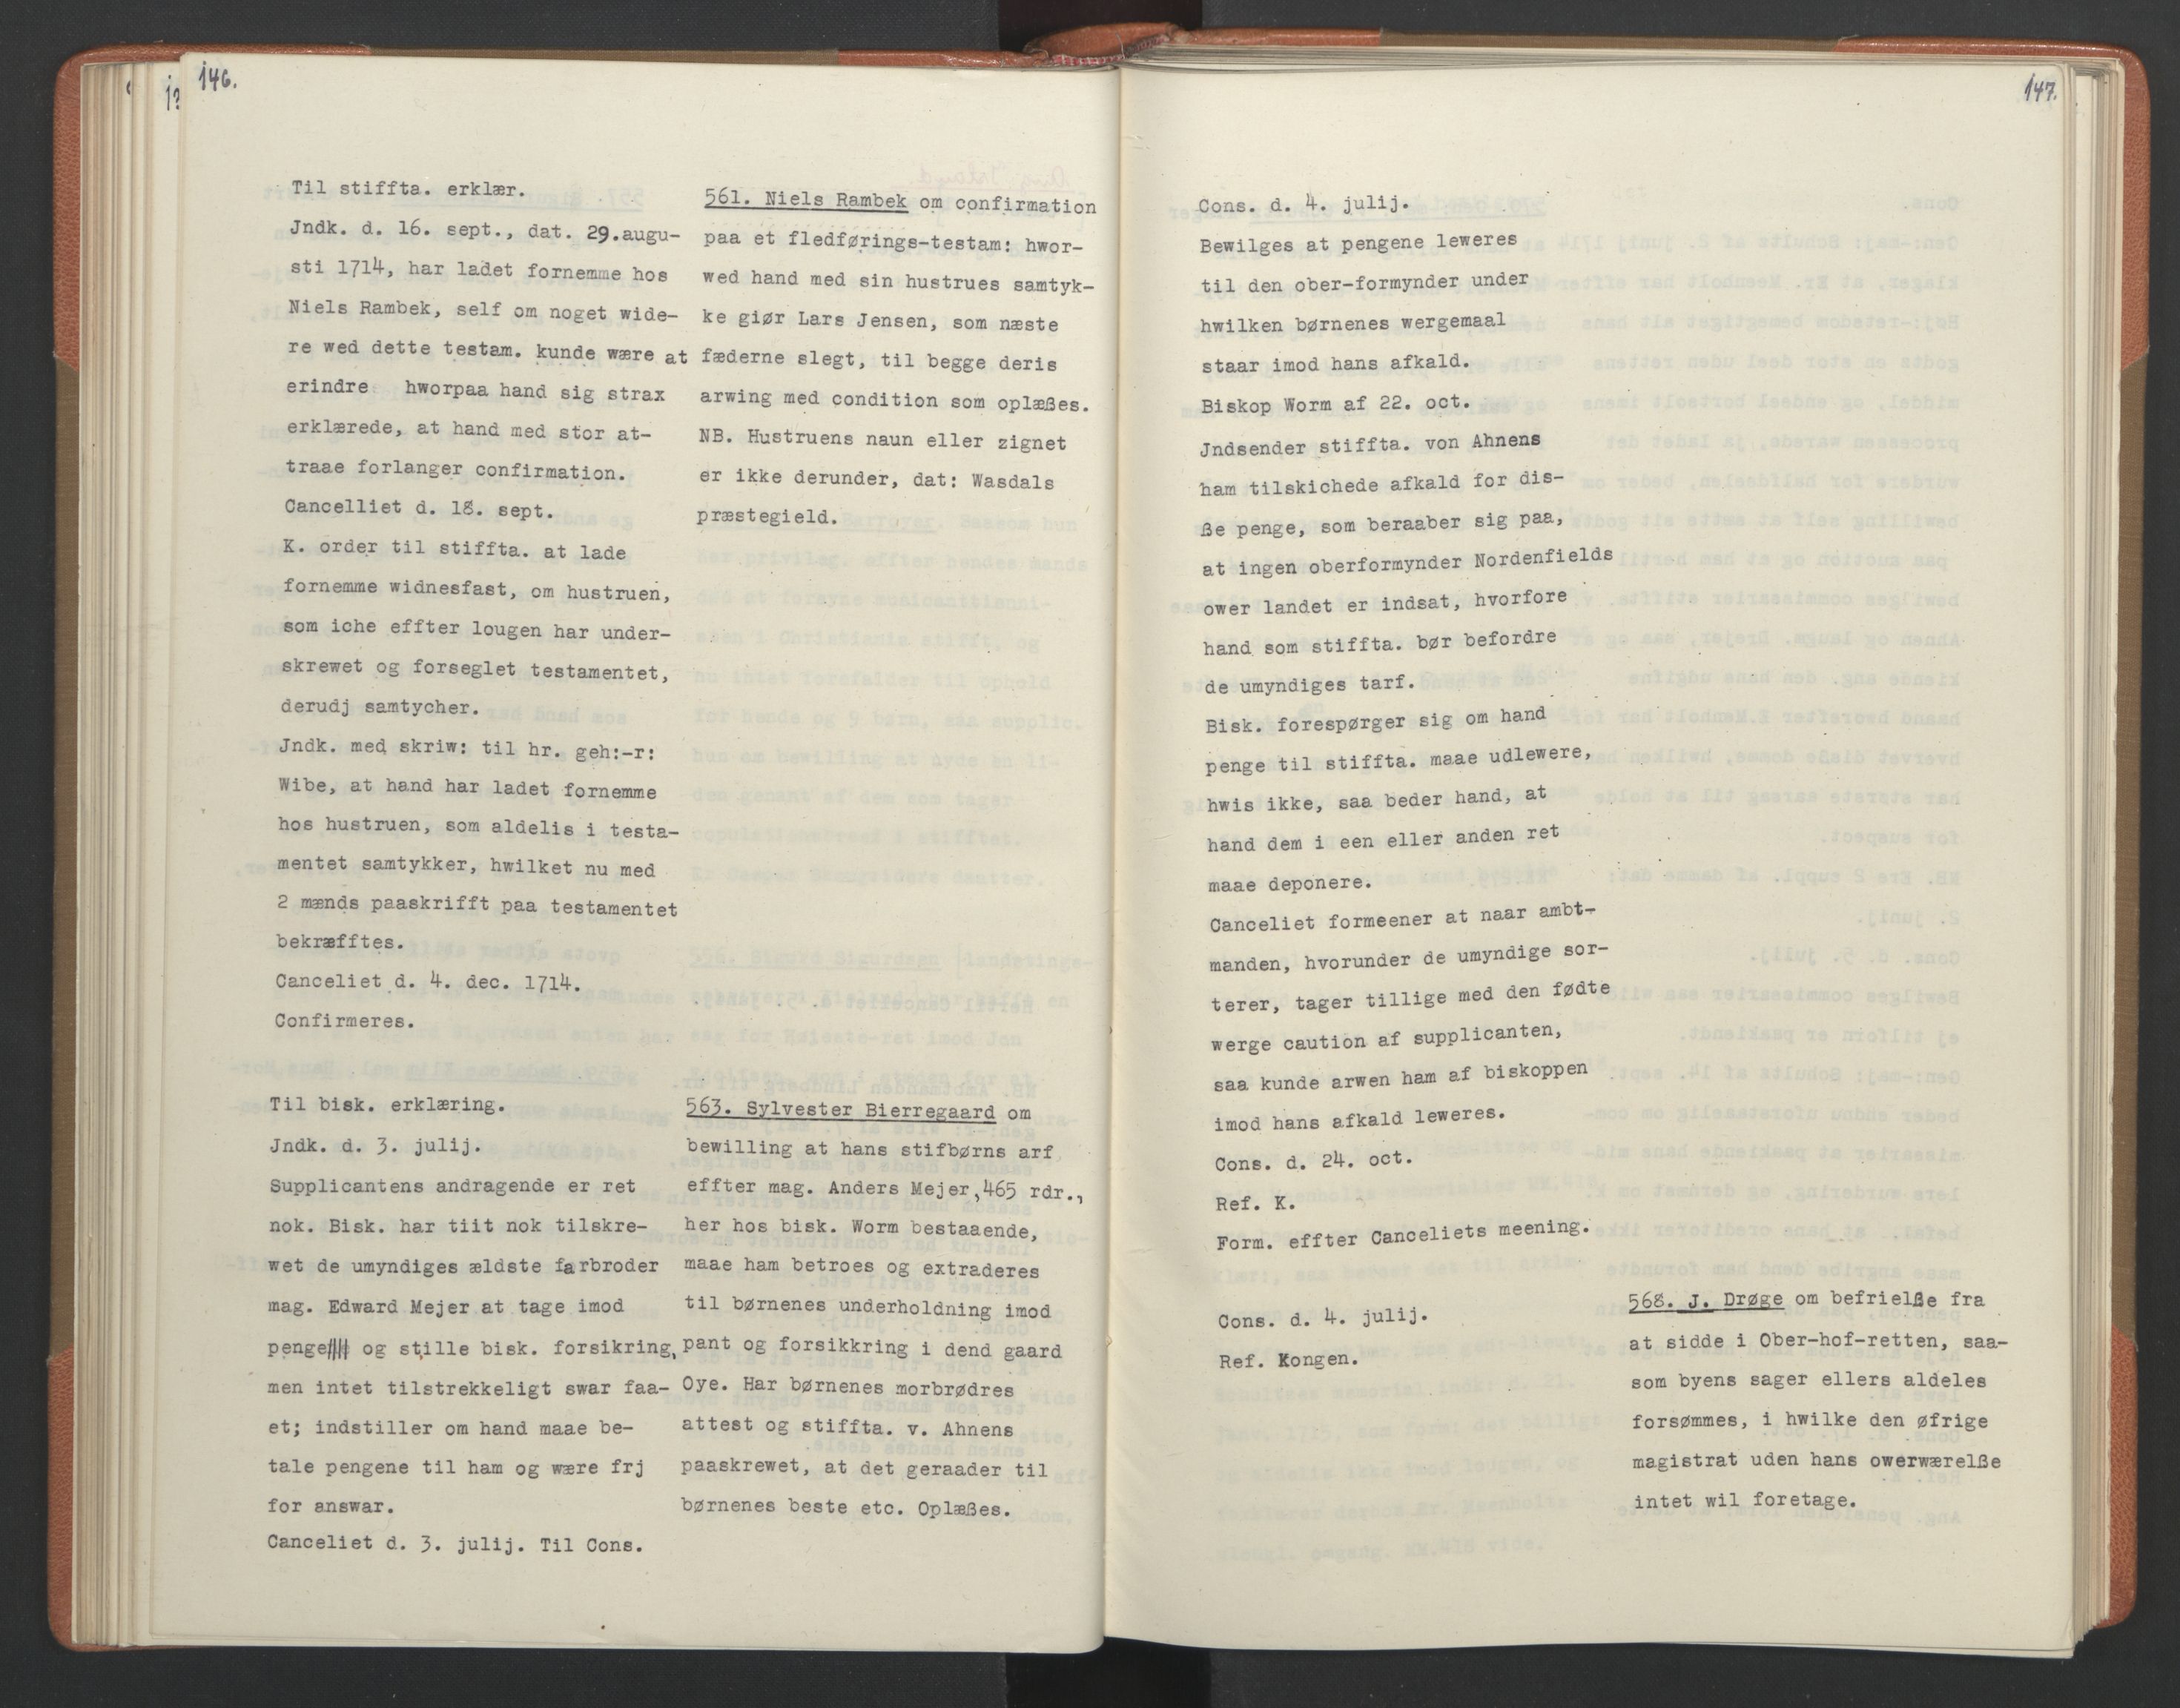 146.
Til stiffta. erklær.
Jndk. d. 16. sept., dat. 29.augu-
sti 1714, har ladet fornemme hos
Niels Rambek, self om noget wide-
re wed dette testam. kunde wære at
erindre hworpaa hand sig strax
erklærede, at hand med stor at-
traae forlanger confirmation.
Cancelliet d. 18. sept.
K. order til stiffta. at lade
fornemme widnesfast, om hustruen,
som iche effter lougen har under-
skrewet og forseglet testamentet,
derudj samtycher.
Jndk. med skriw: til hr. geh:-r:
Wibe, at hand har ladet fornemme
hos hustruen, som aldelis i testa-
mentet samtykker, hwilket nu med
2 mænds paaskrifft paa testamentet
bekræfftes.
Canceliet d. 4. dec. 1714.
Confirmeres.
561. Niels Rambek om confirmation
paa et fledførings-testam: hwor-
wed hand med sin hustrues samtyk-
ke giør Lars Jensen, som næste
fæderne slegt, til begge deris
arwing med condition som oplæßes.
NB. Hustruens naun eller zignet
er ikke derunder, dat: Wasdals
præstegield.
Til bisk. erklæring.
Jndk. d. 3. julij.
Supplicantens andragende er ret
nok. Bisk. har tiit nok tilskre-
wet de umyndiges ældste farbroder
mag. Edward Mejer at tage imod
penge og stille bisk. forsikring,
men intet tilstrekkeligt swar faa-
et; indstiller om hand maae be-
tale pengene til ham og wære frj
for answar.
Canceliet d. 3. julij. Til Cons.
563. Sylvester Bierregaard om
bewilling at hans stifbørns arf
effter mag. Anders Mejer,465 rdr.,
her hos bisk. Worm bestaaende,
maae ham betroes og extraderes
til børnenes underholdning imod
pant og forsikkring i dend gaard
Oye. Har børnenes morbrødres
attest og stiffta. v. Ahnens
paaskrewet, at det geraader til
børnenes beste etc. Oplæßes.
147.
Cons. d. 4. julij.
Bewilges at pengene leweres
til den ober-formynder under
hwilken børnenes wergemaal
staar imod hans afkald.
Biskop Worm af 22. oct.
Jndsender stiffta. von Ahnens
ham tilskichede afkald for dis-
ße penge, som beraaber sig paa,
at ingen oberformynder Nordenfields
ower landet er indsat, hvorfore
hand som stiffta. bør befordre
de umyndiges tarf.
Bisk. forespørger sig om hand
penge til stiffta. maae udlewere,
hwis ikke, saa beder hand, at
hand dem i een eller anden ret
maae deponere.
Canceliet formeener at naar ambt-
manden, hvorunder de umyndige sor-
terer, tager tillige med den fødte
werge caution af supplicanten,
saa kunde arwen ham af biskoppen
imod hans afkald leweres.
Cons. d. 24. oct.
Ref. K.
Form. effter Canceliets meening.
Cons. d. 4. julij.
Ref. Kongen.
568. J. Drøge om befrielße fra
at sidde i Ober-hof-retten, saa-
som byens sager ellers aldeles
forsømmes, i hwilke den øfrige
magistrat uden hans owerwærelße
intet wil foretage.